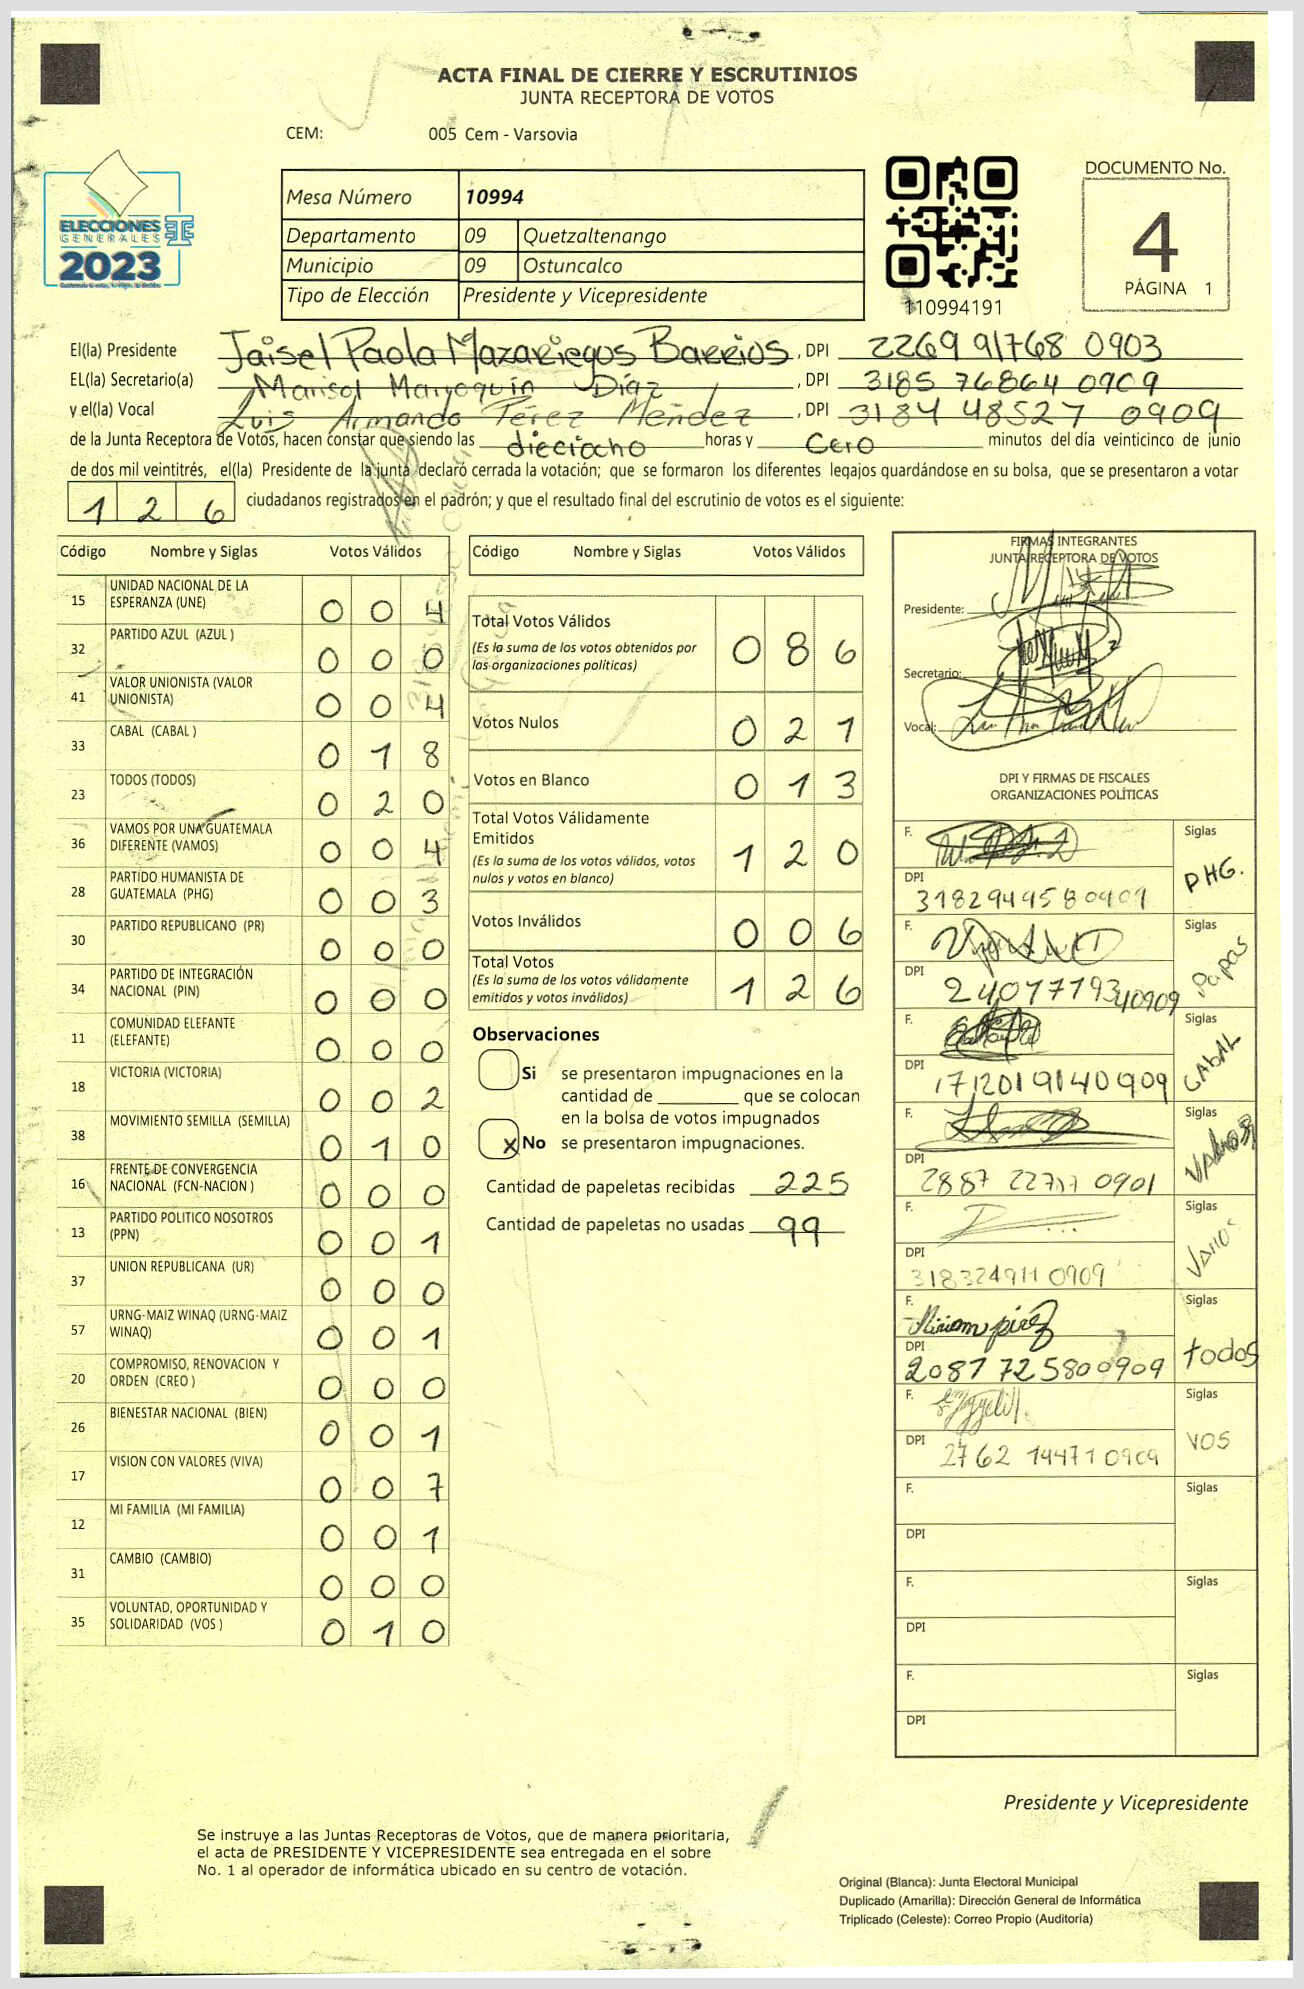 ACTA FINAL DE CIERRE Y ESCRUTINIOS
JUNTA RECEPTORA DE VOTOS
CEM: 005 Cem - Varsovia
ELECCIONES
GENERALES
2023
Mesa Número 10994
Departamento 09 Quetzaltenango
Municipio 09 Ostuncalco
Tipo de Elección Presidente y Vicepresidente
110994191
DOCUMENTO No.
4
PÁGINA 1
El(la) Presidente Jaisel Paola Mazariegos Barrios, DPI 2269 91768 0903
EL(la) Secretario(a) Marisol Marroquín Díaz, DPI 3185 76864 0909
y el(la) Vocal Luis Armando Pérez Méndez, DPI 3184 48527 0909
de la Junta Receptora de Votos, hacen constar que siendo las dieciocho horas y cero minutos del día veinticinco de junio
de dos mil veintitrés, el(la) Presidente de la junta declaró cerrada la votación; que se formaron los diferentes legajos quardándose en su bolsa, que se presentaron a votar
1 2 6 ciudadanos registrados en el padrón; y que el resultado final del escrutinio de votos es el siguiente:
Código Nombre y Siglas Votos Válidos
15 UNIDAD NACIONAL DE LA ESPERANZA (UNE) 0 0 4
32 PARTIDO AZUL (AZUL ) 0 0 0
41 VALOR UNIONISTA (VALOR UNIONISTA) 0 0 4
33 CABAL (CABAL ) 0 1 8
23 TODOS (TODOS) 0 2 0
36 VAMOS POR UNA GUATEMALA DIFERENTE (VAMOS) 0 0 4
28 PARTIDO HUMANISTA DE GUATEMALA (PHG) 0 0 3
30 PARTIDO REPUBLICANO (PR) 0 0 0
34 PARTIDO DE INTEGRACIÓN NACIONAL (PIN) 0 0 0
11 COMUNIDAD ELEFANTE (ELEFANTE) 0 0 0
18 VICTORIA (VICTORIA) 0 0 2
38 MOVIMIENTO SEMILLA (SEMILLA) 0 1 0
16 FRENTE DE CONVERGENCIA NACIONAL (FCN-NACION ) 0 0 0
13 PARTIDO POLITICO NOSOTROS (PPN) 0 0 1
37 UNION REPUBLICANA (UR) 0 0 0
57 URNG-MAIZ WINAQ (URNG-MAIZ WINAQ) 0 0 1
20 COMPROMISO, RENOVACION Y ORDEN (CREO ) 0 0 0
26 BIENESTAR NACIONAL (BIEN) 0 0 1
17 VISION CON VALORES (VIVA) 0 0 7
12 MI FAMILIA (MI FAMILIA) 0 0 1
31 CAMBIO (CAMBIO) 0 0 0
35 VOLUNTAD, OPORTUNIDAD Y SOLIDARIDAD (VOS ) 0 1 0
Código Nombre y Siglas Votos Válidos
Total Votos Válidos 0 8 6
(Es la suma de los votos obtenidos por
las organizaciones políticas)
Votos Nulos 0 2 1
Votos en Blanco 0 1 3
Total Votos Válidamente
Emitidos 1 2 0
(Es la suma de los votos válidos, votos
nulos y votos en blanco)
Votos Inválidos 0 0 6
Total Votos 1 2 6
(Es la suma de los votos válidamente
emitidos y votos inválidos)
Observaciones
Si se presentaron impugnaciones en la
cantidad de ________ que se colocan
en la bolsa de votos impugnados
x No se presentaron impugnaciones.
Cantidad de papeletas recibidas 225
Cantidad de papeletas no usadas 99
FIRMAS INTEGRANTES
JUNTA RECEPTORA DE VOTOS
Presidente:
Secretario:
Vocal:
DPI Y FIRMAS DE FISCALES
ORGANIZACIONES POLÍTICAS
F. Siglas PHG.
DPI 3182949580909
F. Siglas
DPI 2407779340909
F. Siglas CABAL
DPI 1712019140909
F. Siglas
DPI 2887 22717 0901
F. Siglas
DPI 318324911 0909
F. Miriam pérez Siglas todos
DPI 2087 725800909
F. Siglas VOS
DPI 2762 14471 0909
F. Siglas
DPI
F. Siglas
DPI
F. Siglas
DPI
Presidente y Vicepresidente
Se instruye a las Juntas Receptoras de Votos, que de manera prioritaria,
el acta de PRESIDENTE Y VICEPRESIDENTE sea entregada en el sobre
No. 1 al operador de informática ubicado en su centro de votación.
Original (Blanca): Junta Electoral Municipal
Duplicado (Amarilla): Dirección General de Informática
Triplicado (Celeste): Correo Propio (Auditoría)